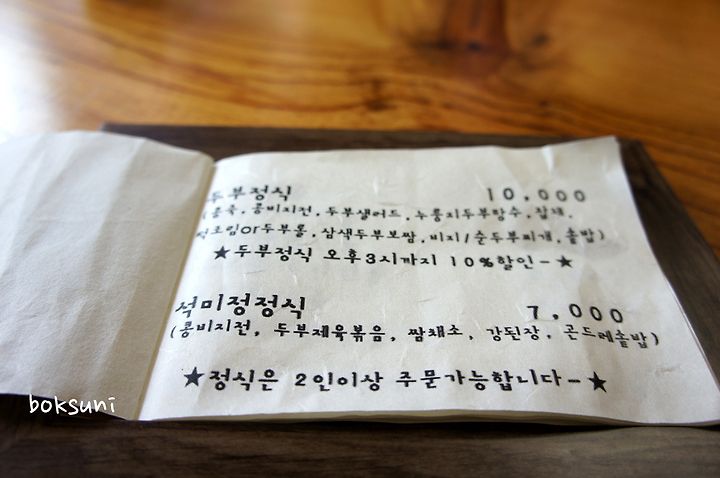 두부정식 10,000
(콩죽, 콩비지전, 두부샐러드, 누룽지두부탕수, 잡채,
두부롤, 삼색두부보쌈, 비지/순두부찌개, 솥밥)
★두부정식 오후3시까지 10%할인~★
석미정정식 7,000
(콩비지전, 두부제육볶음, 쌈채소, 강된장, 곤드레솥밥)
★정식은 2인이상 주문가능합니다~★
boksuni